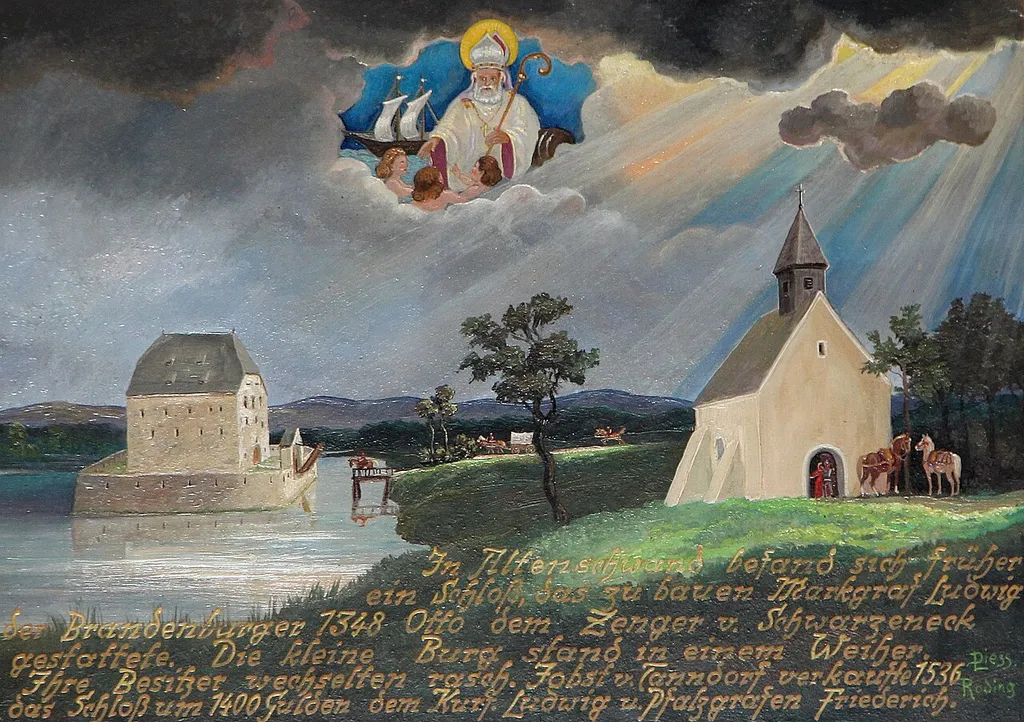 In Altenschwand befand sich früher
ein Schloß, das zu bauen Markgraf Ludwig
der Brandenburger 1348 Otto dem Zenger v. Schwarzeneck
gestattete. Die kleine Burg stand in einem Weiher.
Ihre Besitzer wechselten rasch. Jobst v. Tanndorf verkaufte 1536
das Schloß um 1400 Gulden dem Kurf. Ludwig u. Pfalzgrafen Friederich.
Piess.
Roding